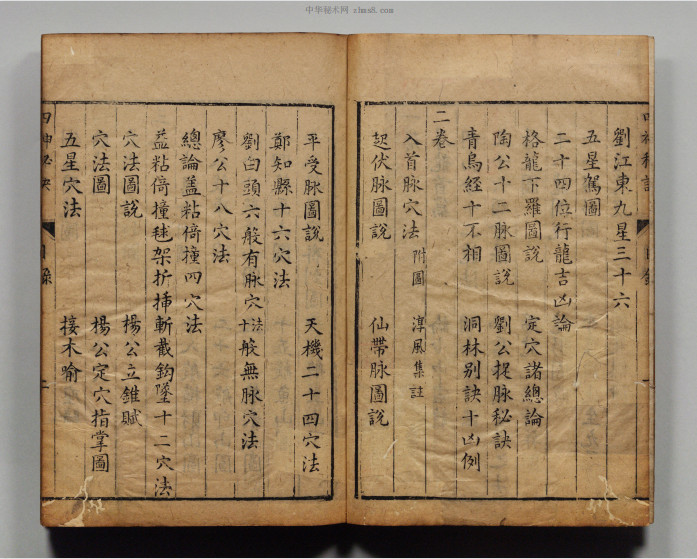 中华秘本网 zhms8.com
劉江東九星三十六
五星駕圖
二十四位行龍吉凶論
格龍下羅圖說 定穴諸總論
陶公十二脉圖說 劉公捉脉秘訣
青烏經十不相 洞林別訣十凶例
二卷
入首脉穴法 附圖 淳風集註
起伏脉圖說 仙帶脉圖說
平受脉圖說 天機二十四穴法
鄭知縣十六穴法
劉白頭六般有脉穴法十般無脉穴法
廖公十八穴法
總論盖粘倚撞四穴法
盖粘倚撞毬架折挿斬截釣墜十二穴法
穴法圖說 楊公立錐賦
穴法圖 楊公定穴指掌圖
五星穴法 接木喻
目錄
二